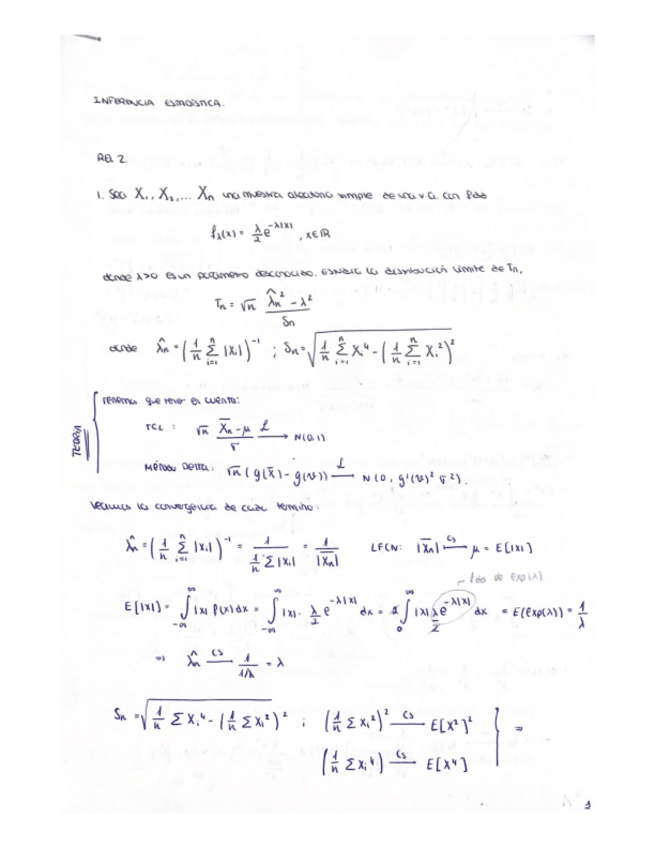 INFERENCIA ESTADÍSTICA.
REL 2
1. Sea X₁, X₂, ... Xₙ una muestra aleatoria simple de una v.a. con fdd
f_λ(x) = λ/2 e^{-λ|x|}, x∈ℝ
donde λ>0 es un parámetro desconocido. Estudia la distribución límite de Tₙ,
Tₙ = √n (λ̂ₙ² - λ²)/Sₙ
donde λ̂ₙ = (1/n Σ_{i=1}^{n} |Xᵢ|)⁻¹ ; Sₙ = √(1/n Σ_{i=1}^{n} Xᵢ⁴ - (1/n Σ_{i=1}^{n} Xᵢ²)²)
TEORÍA
tenemos que tener en cuenta:
TCL : √n (X̄ₙ - μ)/σ —L→ N(0,1)
Método Delta: √n (g(X̄) - g(υ)) —L→ N(0, g'(υ)² σ²).
Veamos la convergencia de cada término:
λ̂ₙ = (1/n Σ_{i=1}^{n} |Xᵢ|)⁻¹ = 1/(1/n Σ|Xᵢ|) = 1/|X̄ₙ| LFCN: |X̄ₙ| —cs→ μ = E[|X|]
fdd de exp(λ)
E[|X|] = ∫_{-∞}^{∞} |x| f(x)dx = ∫_{-∞}^{∞} |x| · λ/2 e^{-λ|x|} dx = 2 ∫_{0}^{∞} |x| λ/2 e^{-λ|x|} dx = E(exp(λ)) = 1/λ
⇒ λ̂ₙ —cs→ 1/(1/λ) = λ
Sₙ = √(1/n Σ Xᵢ⁴ - (1/n Σ Xᵢ²)²) ; (1/n Σ Xᵢ²)² —cs→ E[X²]² ⇒
(1/n Σ Xᵢ⁴) —cs→ E[X⁴]
1